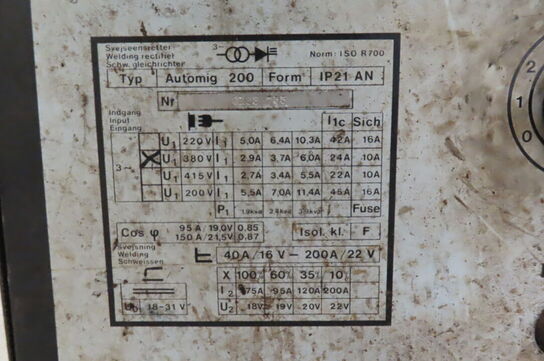 Svejseensretter
Welding rectifier
Schw. gleichrichter
3~
Norm: ISO R700
Typ Automig 200 Form IP21 AN
Nr
Indgang
Input
Eingang
I1c Sich
U1 220V I1 5,0A 6,4A 10,3A 42A 16A
3~ X U1 380V I1 2,9A 3,7A 6,0A 24A 10A
U1 415V I1 2,7A 3,4A 5,5A 22A 10A
U1 200V I1 5,5A 7,0A 11,4A 45A 16A
P1 Fuse
Cos φ 95A/19,0V 0.85
150A/21,5V 0.87
Isol. kl. F
Svejsning
Welding
Schweissen
40A/16V – 200A/22V
X 100% 60% 35% 10%
I2 75A 95A 120A 200A
U0 18-31V U2 18V 19V 20V 22V
2
1
0